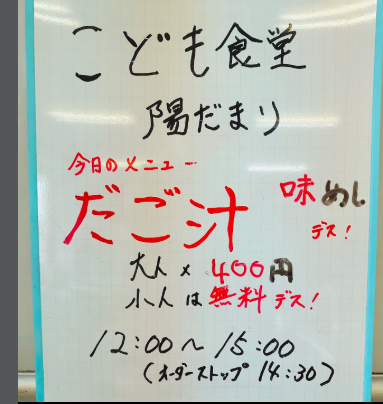 こども食堂
陽だまり
今日のメニュー
だご汁
味めし
デス!
大人 × 400円
小人は無料デス!
12:00～15:00
(オーダーストップ 14:30)